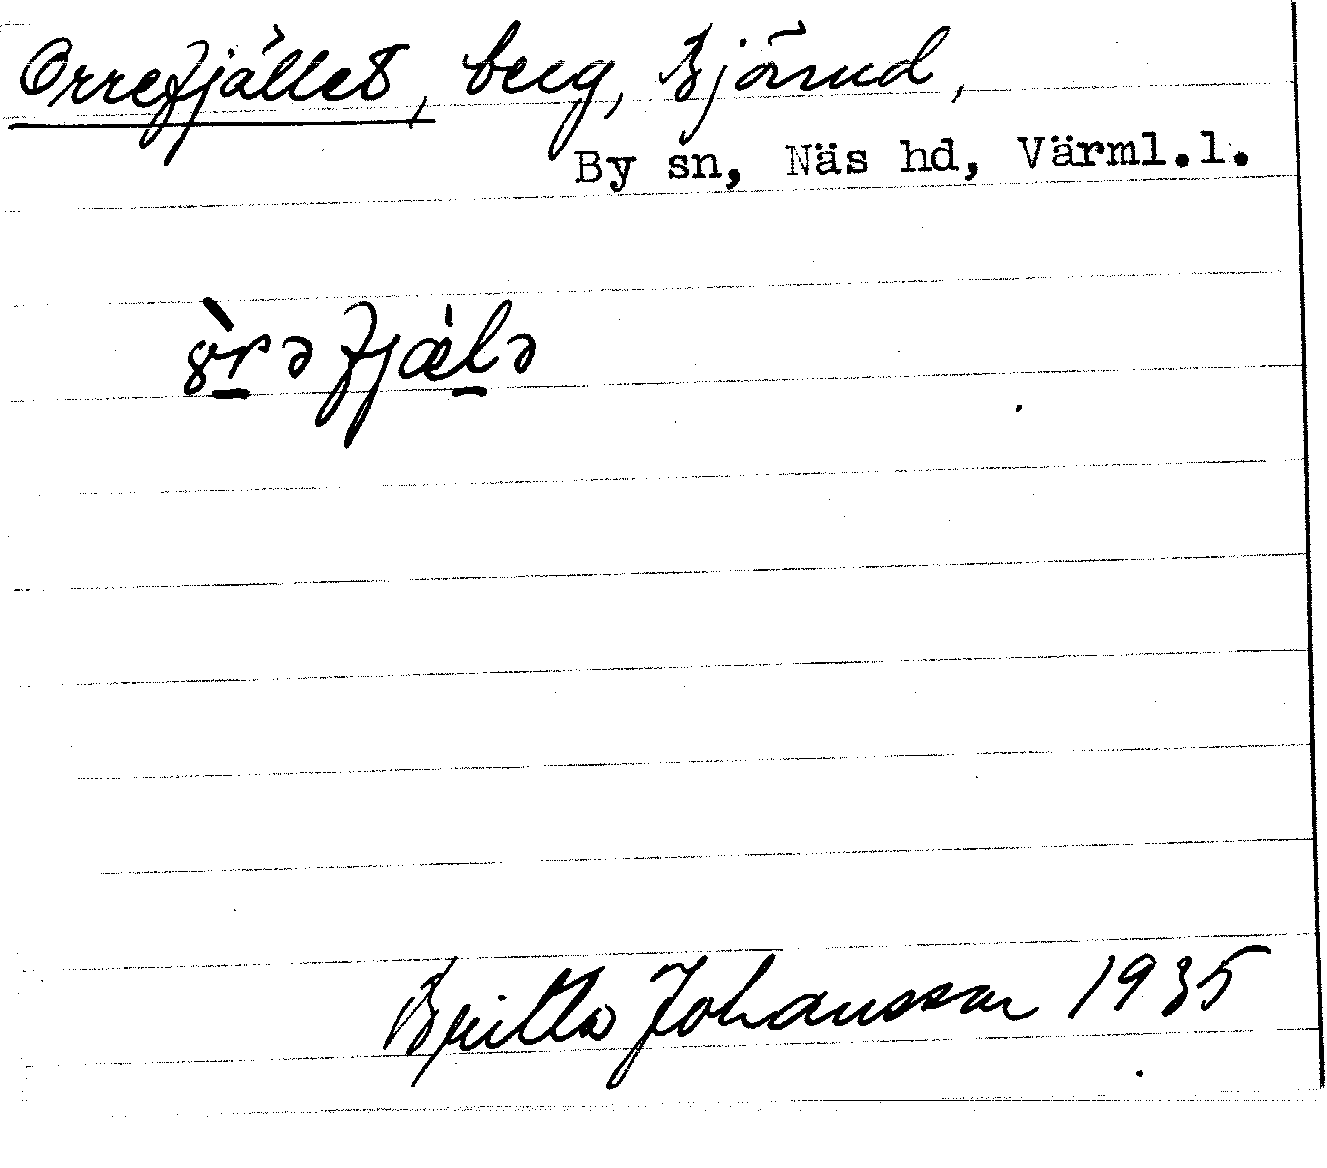 Orrefjället, berg, Björud,
By sn, Näs hd, Värml.l.
ȣ̀r̠ə fjæ̀l̠ə
Britta Johansson 1935